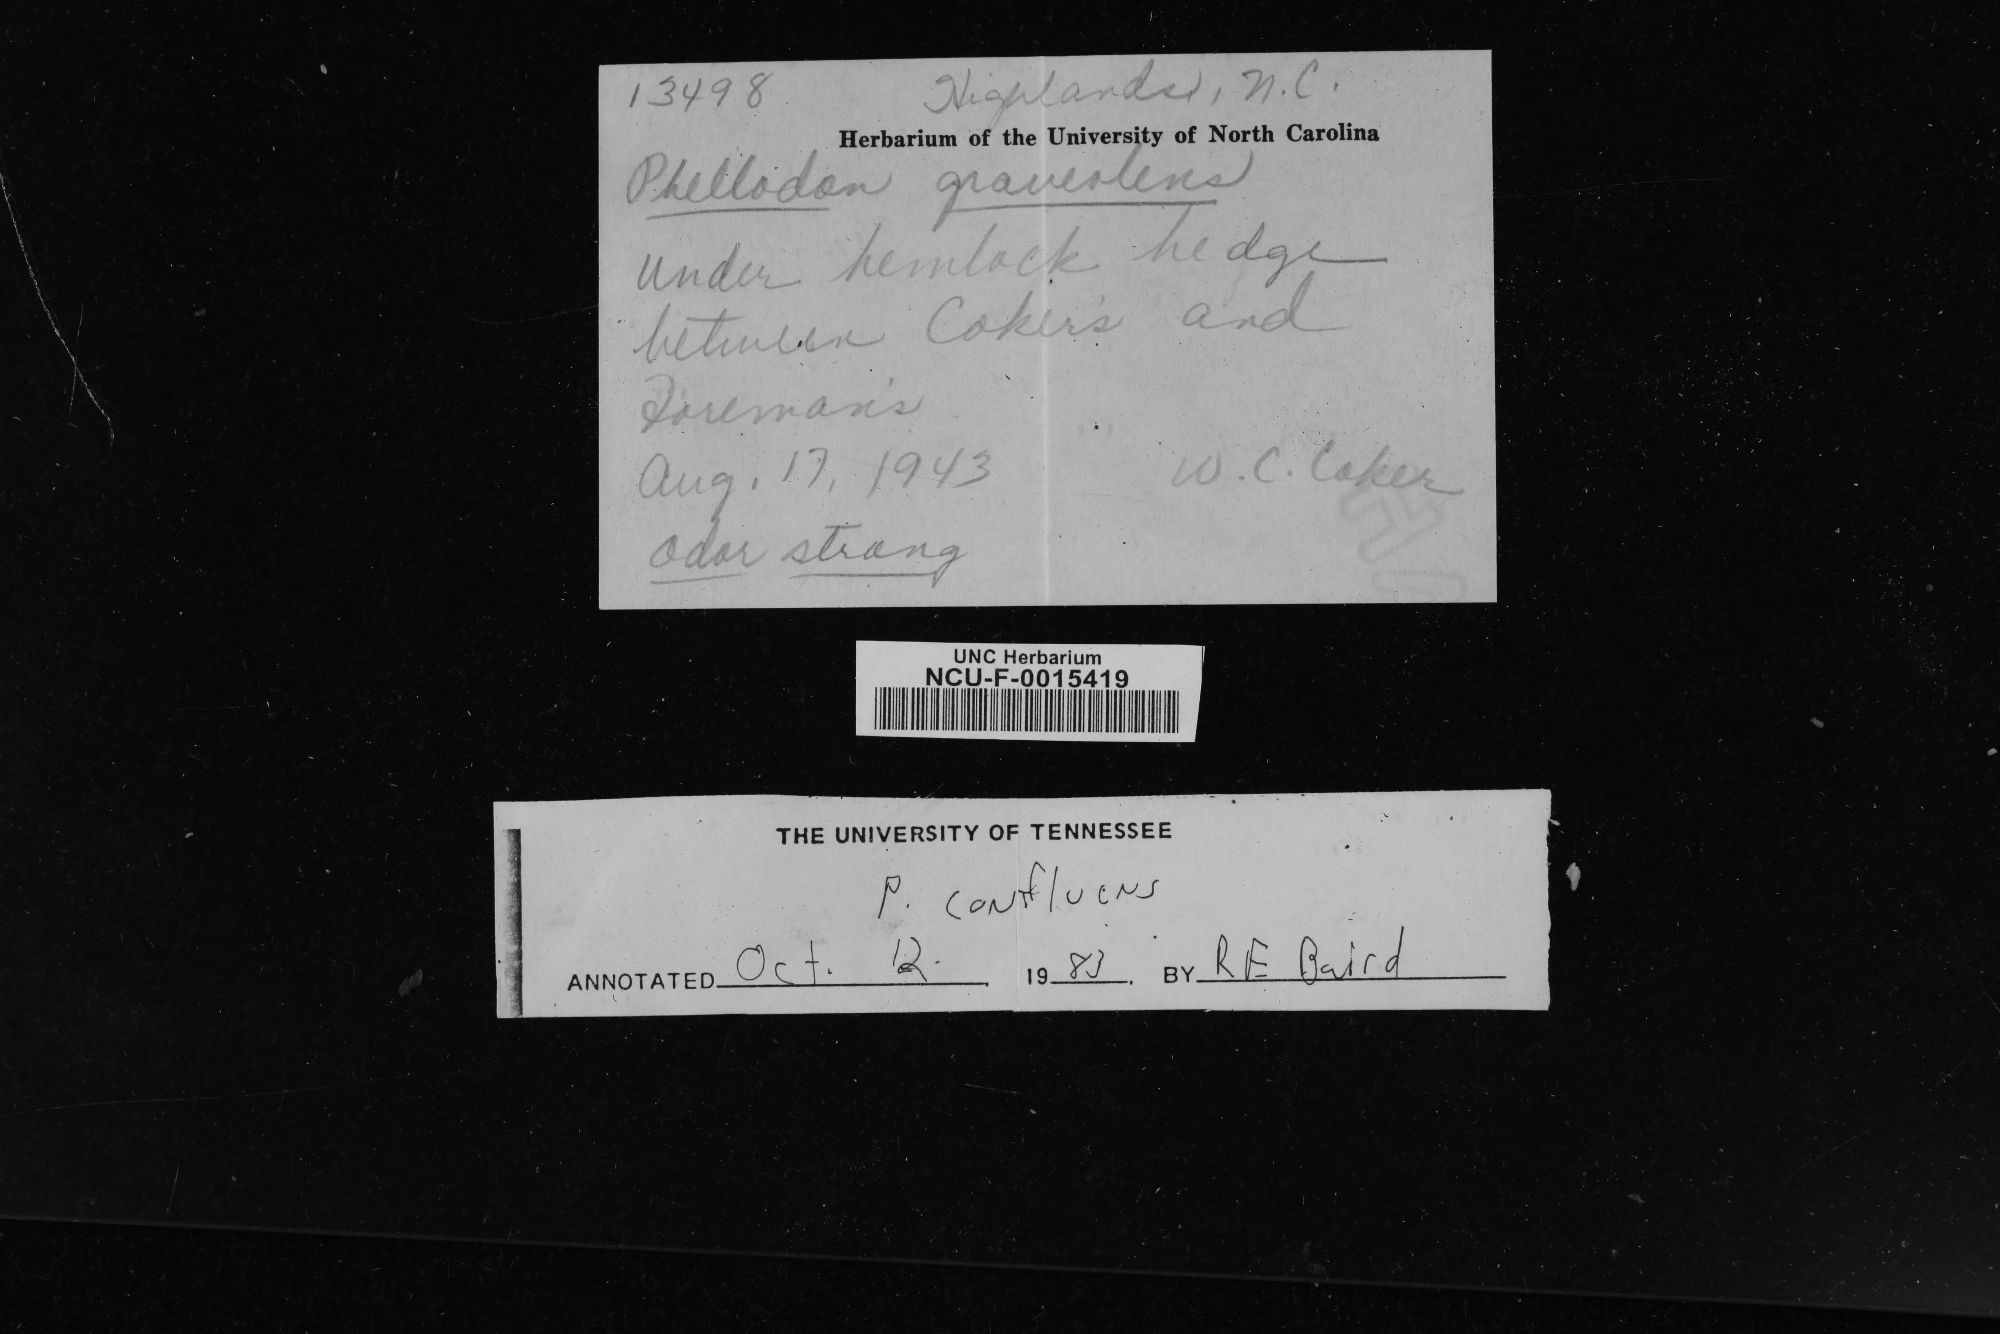 13498 Highlands, N.C.
Herbarium of the University of North Carolina
Phellodon graveolens
under hemlock hedge
between Coker's and
Foreman's
Aug. 17, 1943 W. C. Coker
odor strong
UNC Herbarium
NCU-F-0015419
THE UNIVERSITY OF TENNESSEE
P. confluens
ANNOTATED Oct. 12. 1983. BY R E Baird